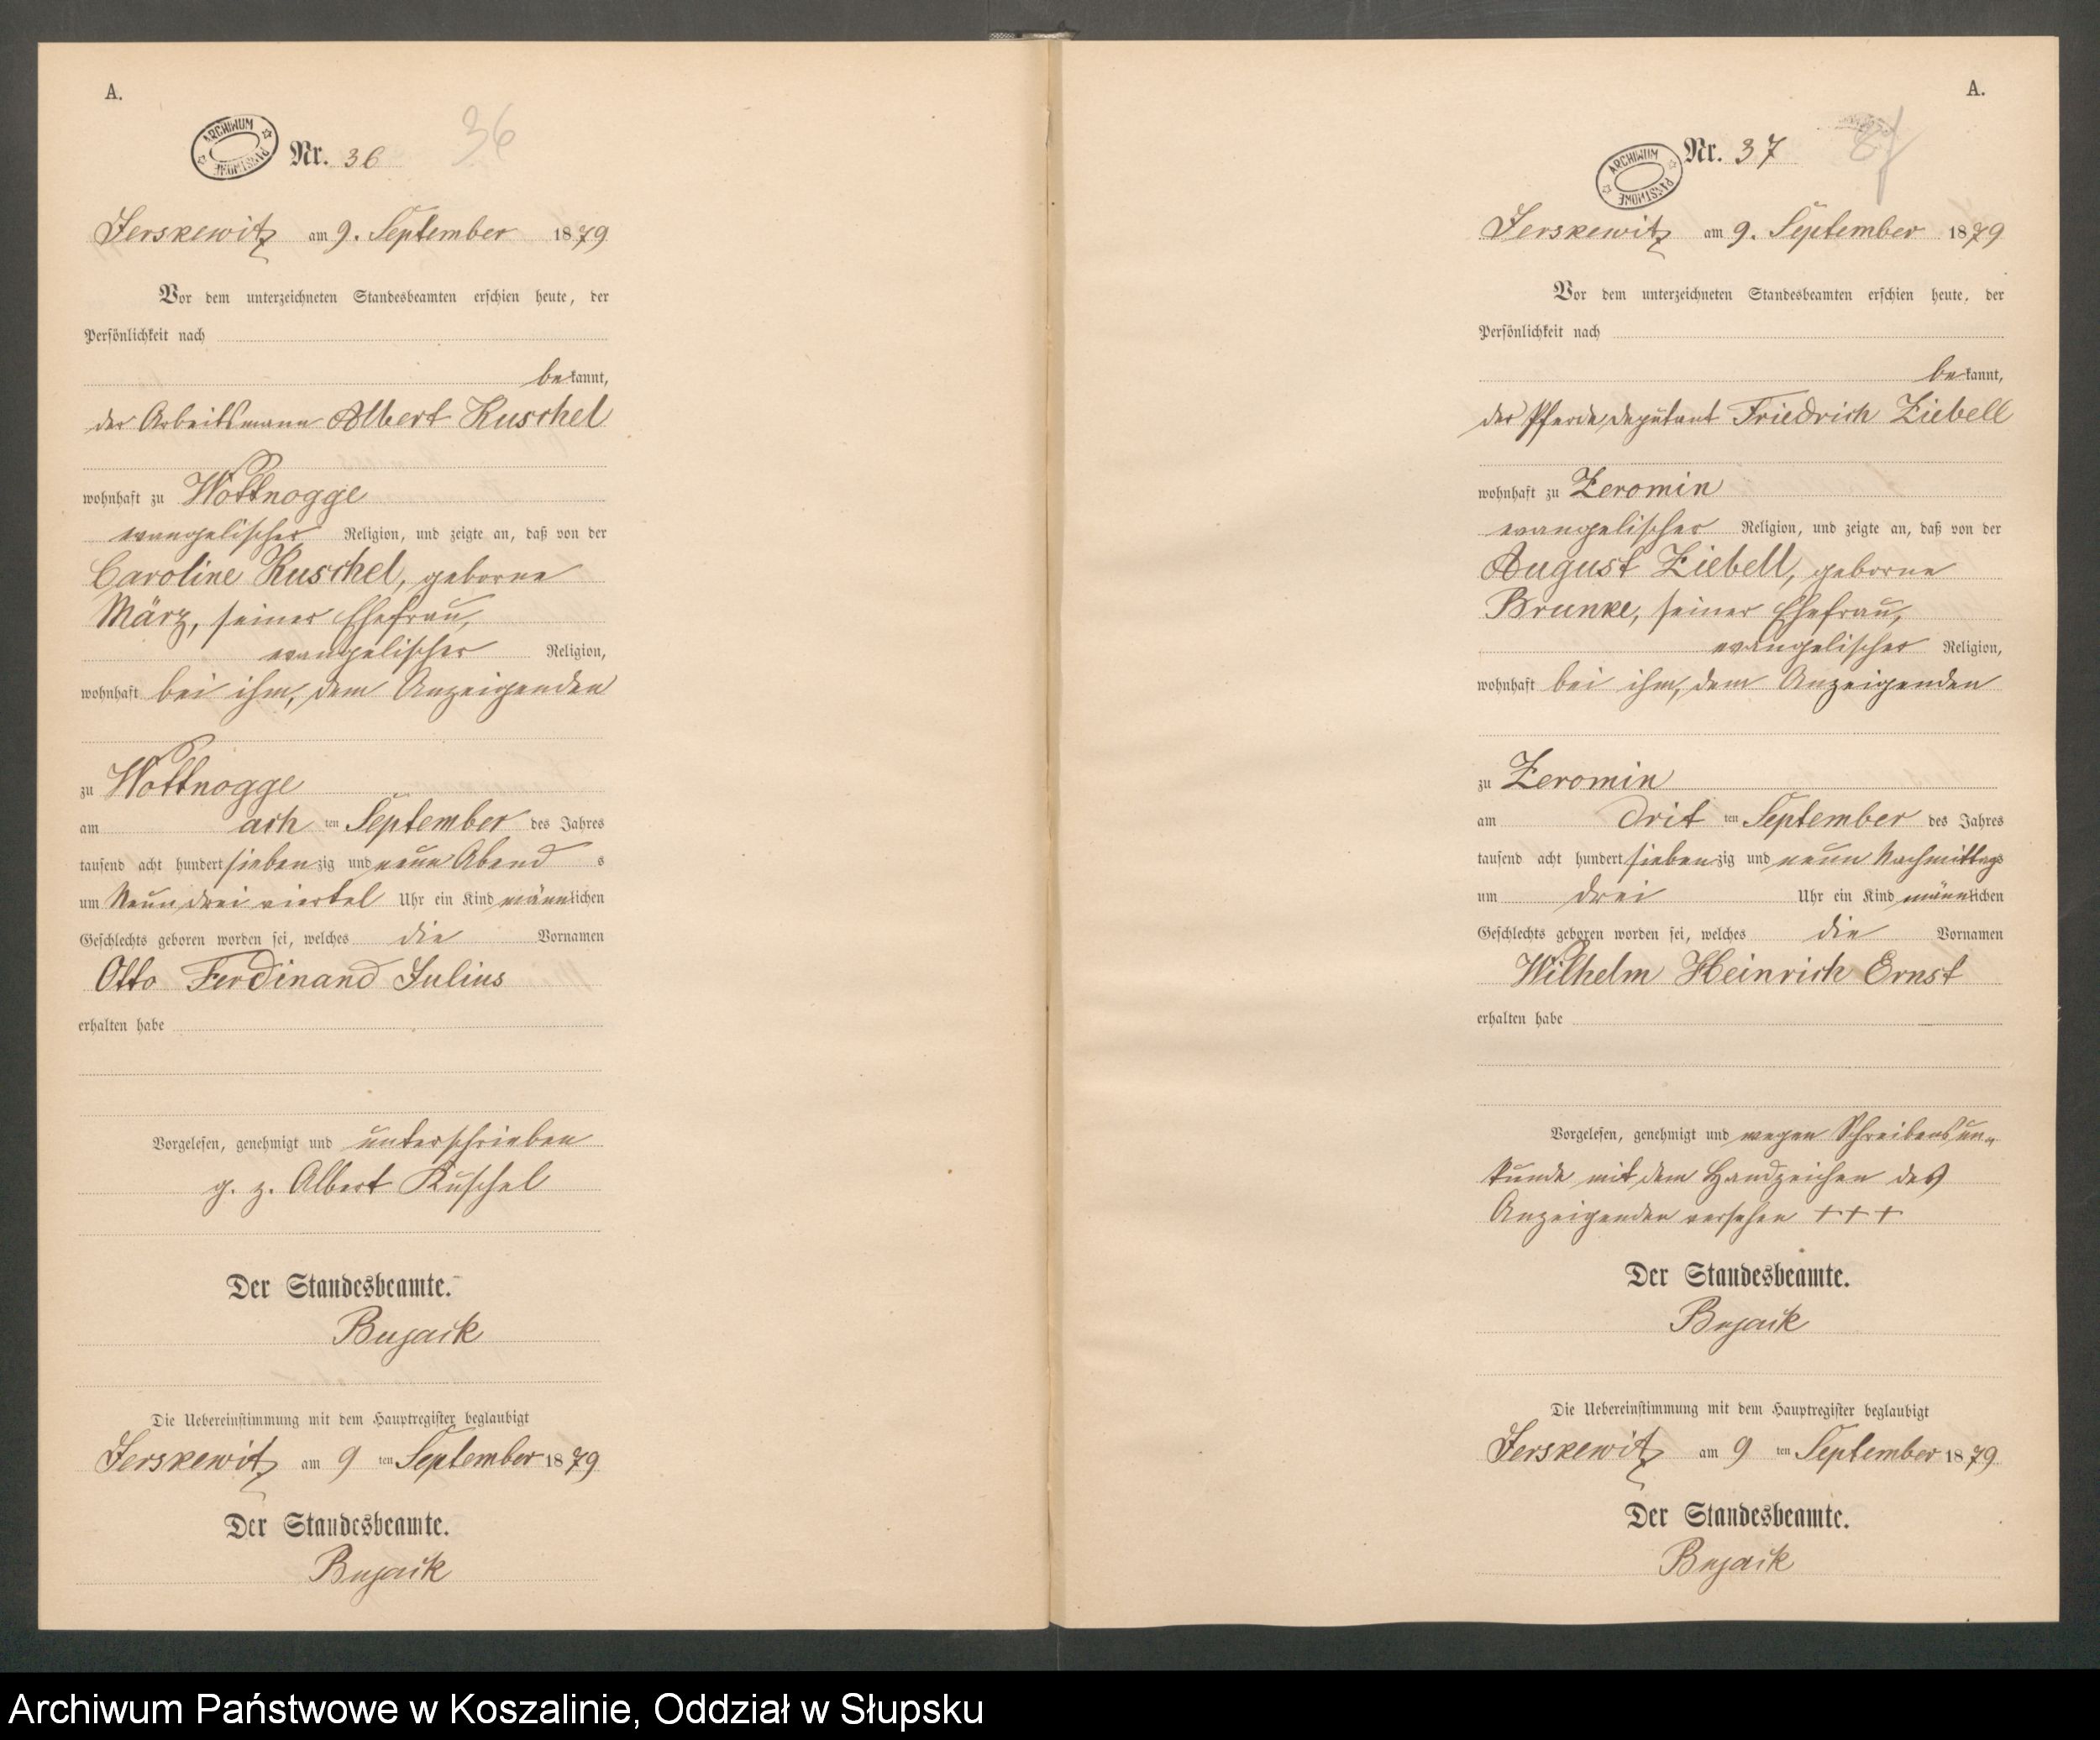 A.
ARCHIWUM PAŃSTWOWE
Nr. 36
36
Jerskewitz am 9. September 1879
Vor dem unterzeichneten Standesbeamten erschien heute, der
Persönlichkeit nach
bekannt,
der Arbeitsmann Albert Kuschel
wohnhaft zu Wottnogge
evangelischer Religion, und zeigte an, daß von der
Caroline Kuschel, geborne
März, seiner Ehefrau,
evangelischer Religion,
wohnhaft bei ihm, dem Anzeigenden
zu Wottnogge
am acht ten September des Jahres
tausend acht hundert siebenzig und neun Abend s
um Neun drei viertel Uhr ein Kind männlichen
Geschlechts geboren worden sei, welches die Vornamen
Otto Ferdinand Julius
erhalten habe
Vorgelesen, genehmigt und unterschrieben
g. z. Albert Kuschel
Der Standesbeamte.
Bujack
Die Uebereinstimmung mit dem Hauptregister beglaubigt
Jerskewitz am 9 ten September 1879
Der Standesbeamte.
Bujack
A.
ARCHIWUM PAŃSTWOWE
Nr. 37
Jerskewitz am 9. September 1879
Vor dem unterzeichneten Standesbeamten erschien heute, der
Persönlichkeit nach
bekannt,
der Pferdedeputant Friedrich Ziebell
wohnhaft zu Zeromin
evangelischer Religion, und zeigte an, daß von der
August Ziebell, geborne
Brunke, seiner Ehefrau,
evangelischer Religion,
wohnhaft bei ihm, dem Anzeigenden
zu Zeromin
am drit ten September des Jahres
tausend acht hundert siebenzig und neun Nachmittags
um drei Uhr ein Kind männlichen
Geschlechts geboren worden sei, welches die Vornamen
Wilhelm Heinrich Ernst
erhalten habe
Vorgelesen, genehmigt und wegen Schreibensun-
kunde mit dem Handzeichen des
Anzeigenden versehen +++
Der Standesbeamte.
Bujack
Die Uebereinstimmung mit dem Hauptregister beglaubigt
Jerskewitz am 9 ten September 1879
Der Standesbeamte.
Bujack
Archiwum Państwowe w Koszalinie, Oddział w Słupsku